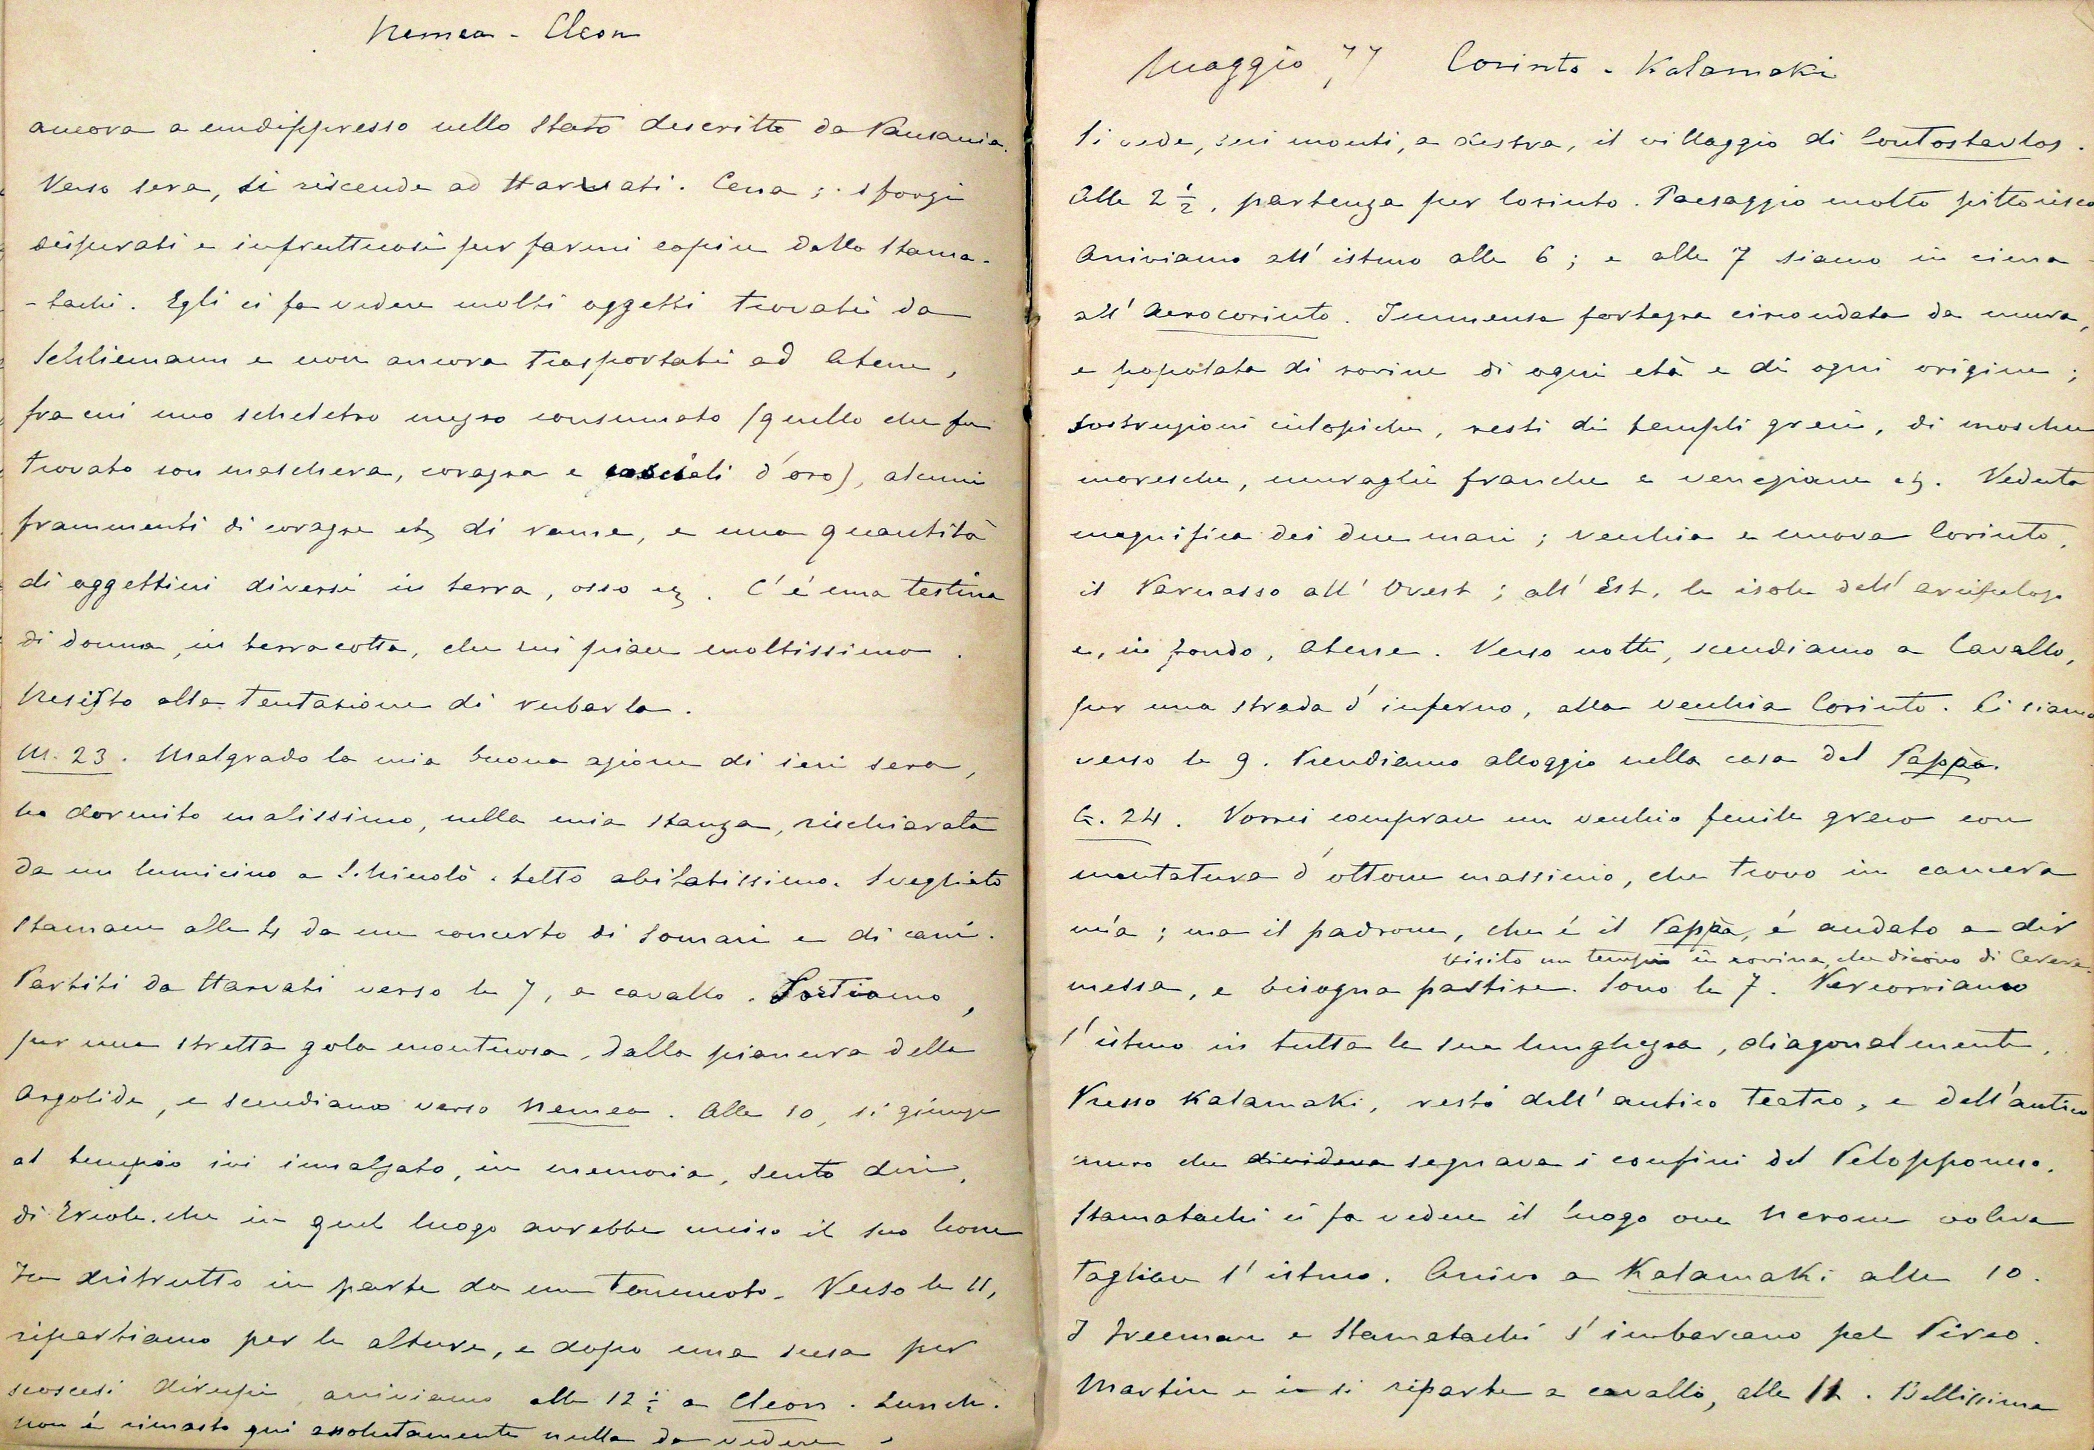 Nemea - Cleon
ancora a un dippresso nello stato descritto da Pausania.
Verso sera, si riscende ad Harvati. Cena; sforzi
disperati e infruttuosi per farmi capire dallo Stama-
-tachi. Egli ci fa vedere molti oggetti trovati da
Schliemann e non ancora trasportati ad Atene,
fra cui uno scheletro mezzo consumato (quello che fu
trovato con maschera, corazza e cosciali d'oro), alcuni
frammenti di corazze etz di rame, e una quantità
di oggettini diversi in terra, osso etz. C'è una testina
di donna, in terra cotta, che mi piace moltissimo.
Resisto alla tentazione di rubarla.
M. 23. Malgrado la mia buona azione di ieri sera,
ho dormito malissimo, nella mia stanza, rischiarata
da un lumicino a letto abitatissimo. Svegliato
stamane alle 4 da un concerto di somari e di cani.
Partiti da Harvati verso le 7, a cavallo. Sortiamo,
per una stretta gola montuosa, dalla pianura della
Argolide, e scendiamo verso Nemea. Alle 10, si giunge
al tempio ivi innalzato, in memoria, sento dire,
di Ercole, che in quel luogo avrebbe ucciso il suo leone
Fu distrutto in parte da un terremoto. Verso le 11,
ripartiamo per le alture, e dopo una scesa per
scoscesi dirupi arriviamo alle 12 ½ a Cleon. Lunch.
non è rimasto qui assolutamente nulla da vedere.
Maggio 77 Corinto - Kalamaki
Si vede, sui monti, a destra, il villaggio di Contostavlos.
Alle 2 ½, partenza per Corinto. Paesaggio molto pittorisco
Arriviamo all' istmo alle 6; e alle 7 siamo in cima
all' Acrocorinto. Immensa fortezza circondata da mura,
e popolata di rovine di ogni età e di ogni origine;
sostruzioni ciclopiche, resti di templi greci, di moschee
moresche, muraglie franche e veneziane etz. Veduta
magnifica dei due mari; vecchia e nuova Corinto,
il Parnasso all' Ovest; all' Est, le isole dell' arcipelago
e, in fondo, Atene. Verso notte, scendiamo a cavallo,
per una strada d'inferno, alla vecchia Corinto. Ci siamo
verso le 9. Prendiamo alloggio nella casa del Pappà.
G. 24. Vorrei comprare un vecchio fucile greco con
montatura d'ottone massiccio, che trovo in camera
mia; ma il padrone, che è il Pappà, è andato a dir
visito un tempio in rovina, che dicono di Cerere.
messa, e bisogna partire. Sono le 7. Percorriamo
l'istmo in tutta la sua lunghezza, diagonalmente.
Presso Kalamaki, resti dell' antico teatro, e dell'antico
muro che dividava segnava i confini del Peloponneso.
Stamatachi ci fa vedere il luogo ove Nerone voleva
tagliare l'istmo. Arrivo a Kalamaki alle 10.
I Freeman e Stamatachi s'imbarcano pel Pireo.
Martin e io si riparte a cavallo, alle 11. Bellissima